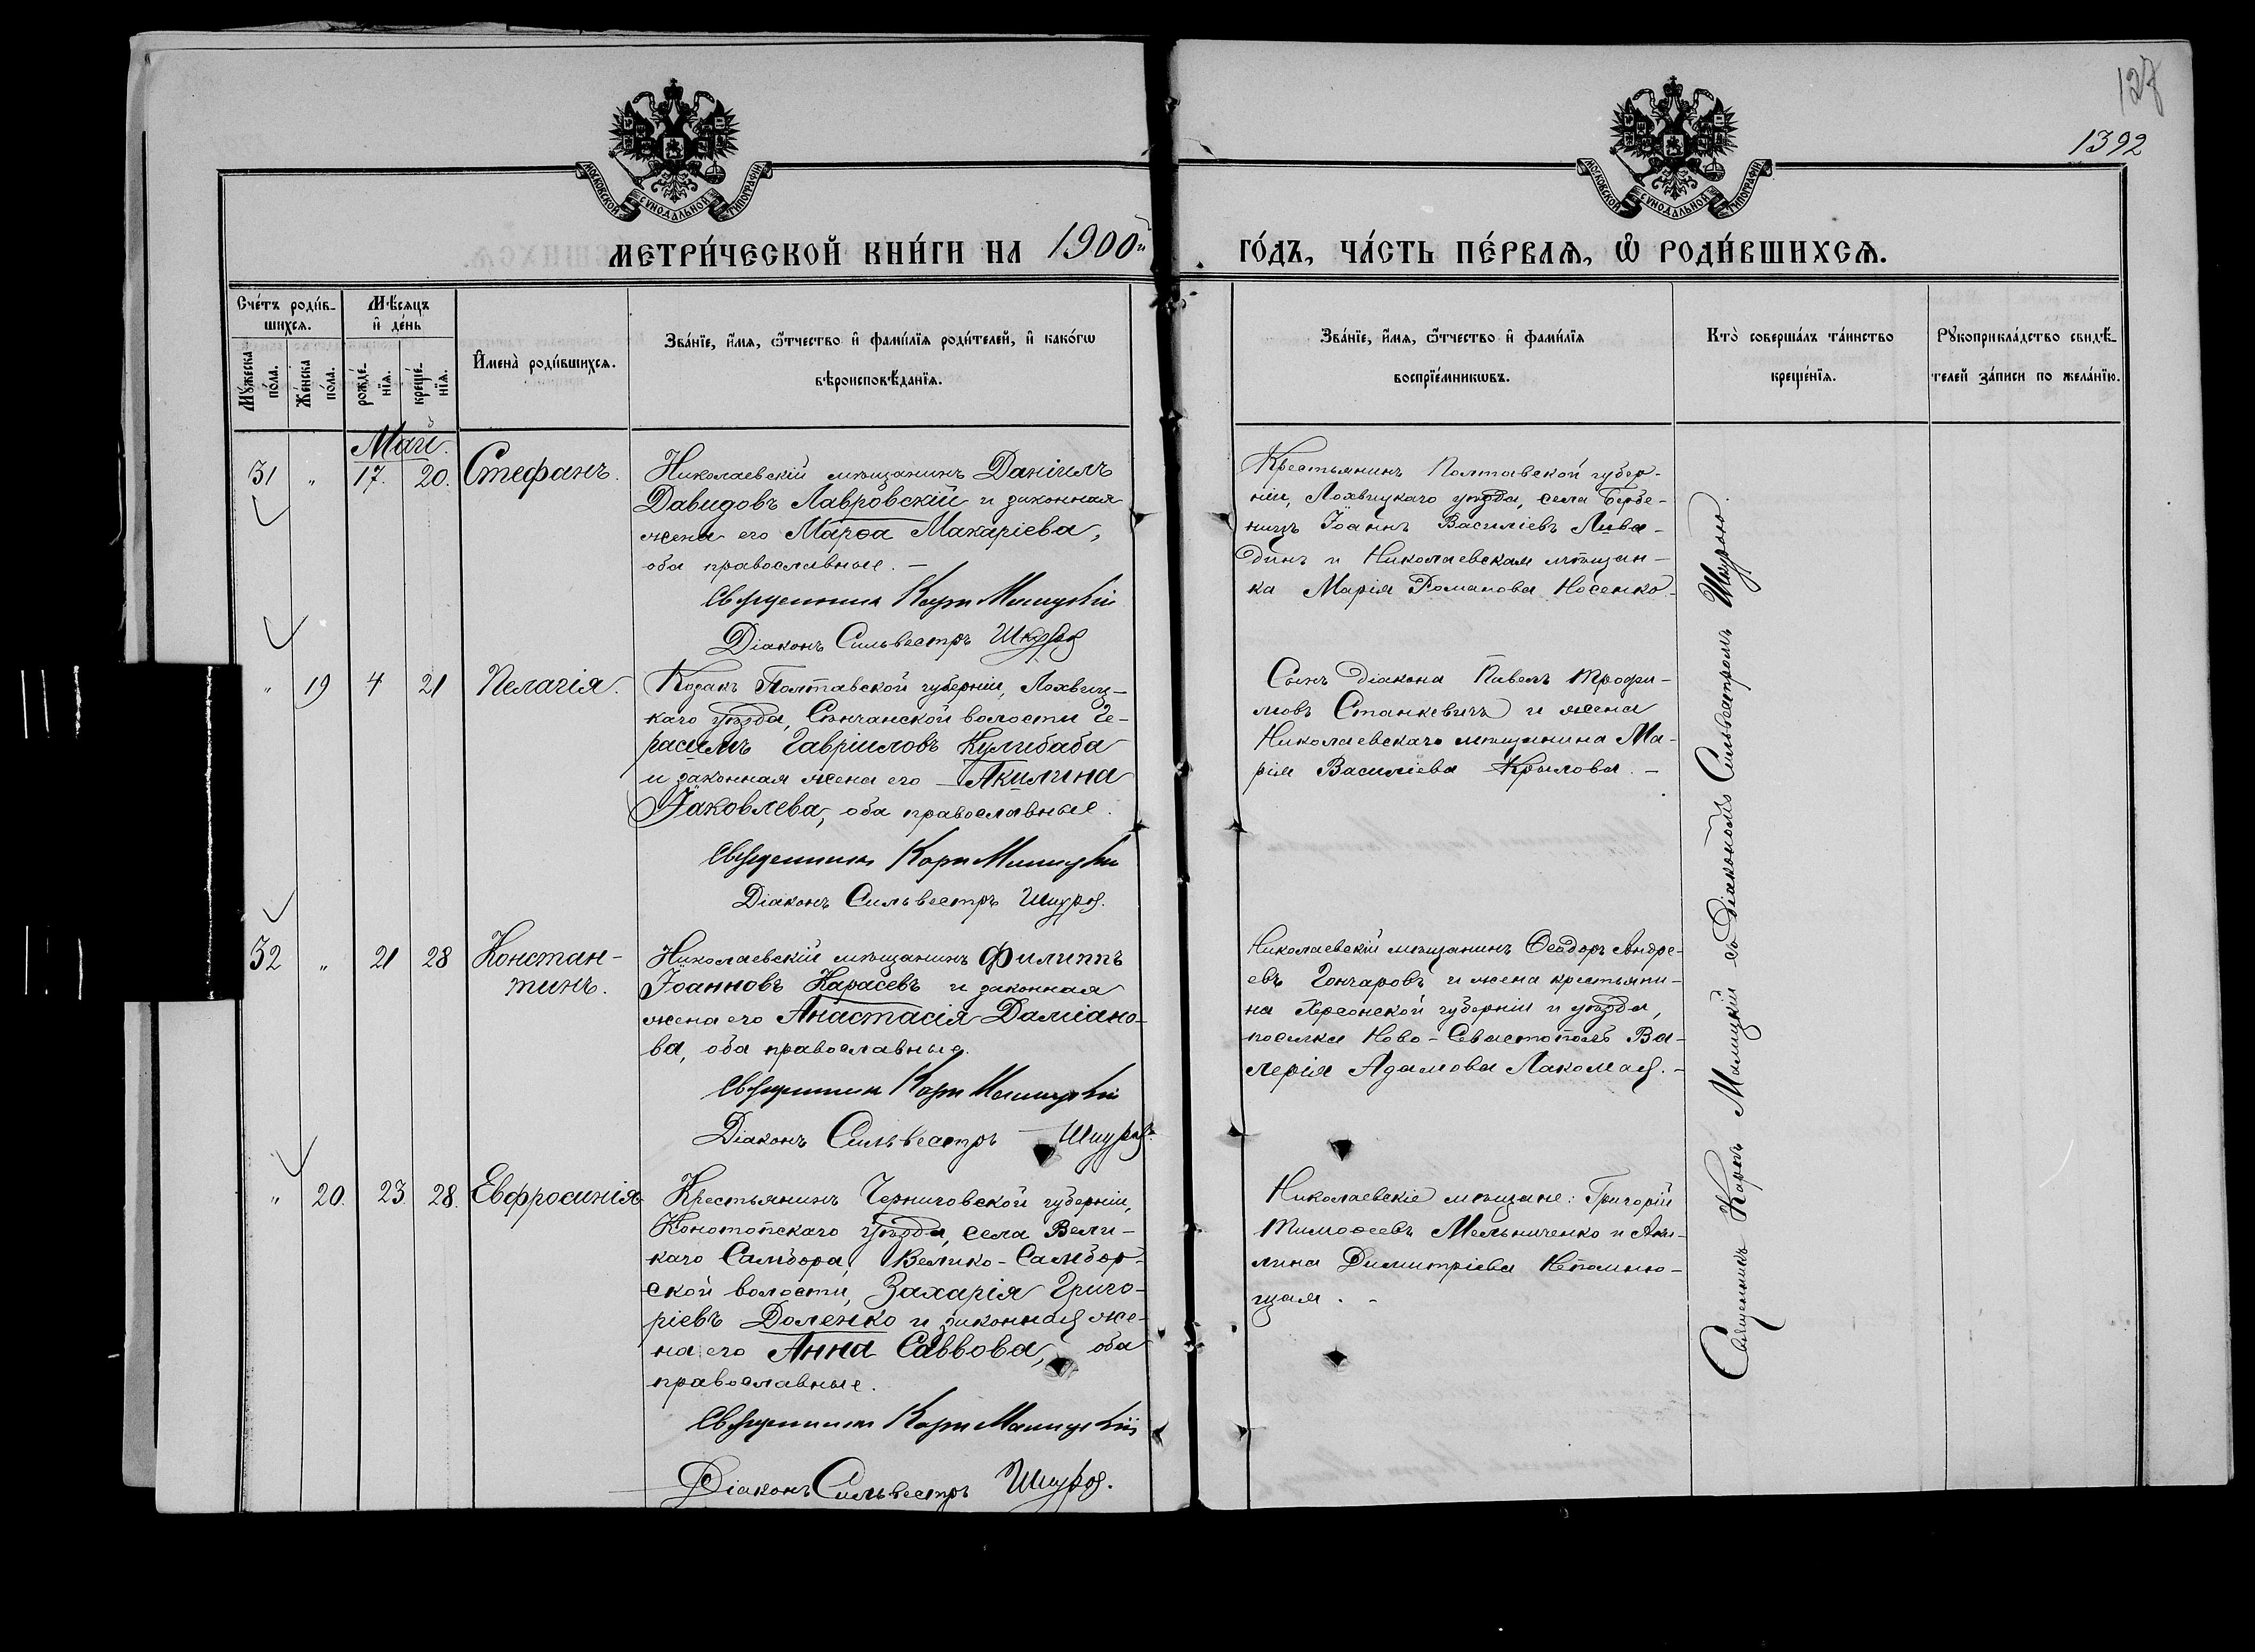 127
1392
МОСКОВСКОЙ СУНОДАЛЬНОЙ ТИПОГРАФІИ
МОСКОВСКОЙ СУНОДАЛЬНОЙ ТИПОГРАФІИ
МЕТРИ́ЧЕСКОЙ КНИ́ГИ НА 1900й ГО́ДЪ, ЧА́СТЬ ПЕ́РВАѦ, Ѽ РОДИ́ВШИХСѦ.
Сче́тъ роди́в-
шихсѧ.
Мꙋ́жеска
по́ла.
Же́нска
по́ла.
Мѣ́сѧцъ
и҆ де́нь
рожде́-
нїѧ.
креще́-
нїѧ.
И҆мена̀ роди́вшихсѧ.
Зва́нїе, и҆́мѧ, ѻ҆́тчество и҆ фами́лїѧ роди́телей, и҆ како́гѡ
вѣроисповѣ́данїѧ.
Зва́нїе, и҆́мѧ, ѻ҆́тчество и҆ фами́лїѧ
воспрїе́мникѡвъ.
Кто̀ соверша́лъ та́инство
креще́нїѧ.
Рꙋкоприкла́дство свидѣ́-
телей за́писи по жела́нїю.
Май.
31 " 17. 20. Стефанъ.
Николаевскій мѣщанинъ Даніилъ
Давидовъ Лавровскій и законная
жена его Марѳа Макаріева,
оба православные. —
Священникъ Карп Малицкій
Діаконъ Сильвестръ Шкуро
Крестьянинъ Полтавской губер-
ніи, Лохвицкаго уѣзда, села Бербе-
ницъ Іоаннъ Василіевъ Лива-
динъ и Николаевская мѣщан-
ка Марія Романова Носенко.
" 19 4 21 Пелагія.
Козакъ Полтавской губерніи, Лохвиц-
каго уѣзда, Сѣнчанской волости Ге-
расимъ Гавріиловъ Кулибаба
и законная жена его Акилина
Іаковлева, оба православные.
Священникъ Карп Малицкій
Діаконъ Сильвестръ Шкуро.
Сынъ діакона Павелъ Трофи-
мовъ Станкевичъ и жена
Николаевскаго мѣщанина Ма-
рія Василіева Крылова. —
32 " 21 28 Констан-
тинъ.
Николаевскій мѣщанинъ Филиппъ
Іоанновъ Карасевъ и законная
жена его Анастасія Даміано-
ва, оба православные.
Священникъ Карп Малицкій
Діаконъ Сильвестръ Шкуро.
Николаевскій мѣщанинъ Ѳеодоръ Андре-
евъ Гончаровъ и жена крестьяни-
на Херсонской губерніи и уѣзда,
поселка Ново-Севастополь Ва-
лерія Адамова Лакомая. —
" 20. 23 28. Евфросинія
Крестьянинъ Черниговской губерніи,
Конотопскаго уѣзда, села Вели-
каго Самбора, Велико-Самбор-
ской волости, Захарія Григо-
ріевъ Доленко и законная же-
на его Анна Саввова, оба
православные.
Священникъ Карп Малицкій
Діаконъ Сильвестръ Шкуро.
Николаевскіе мѣщане: Григорій
Тимоѳеевъ Мельниченко и Аки-
лина Димитріева Непомню-
щая. -
Священникъ Карпъ Малицкій съ Діакономъ Сильвестромъ Шкурою.